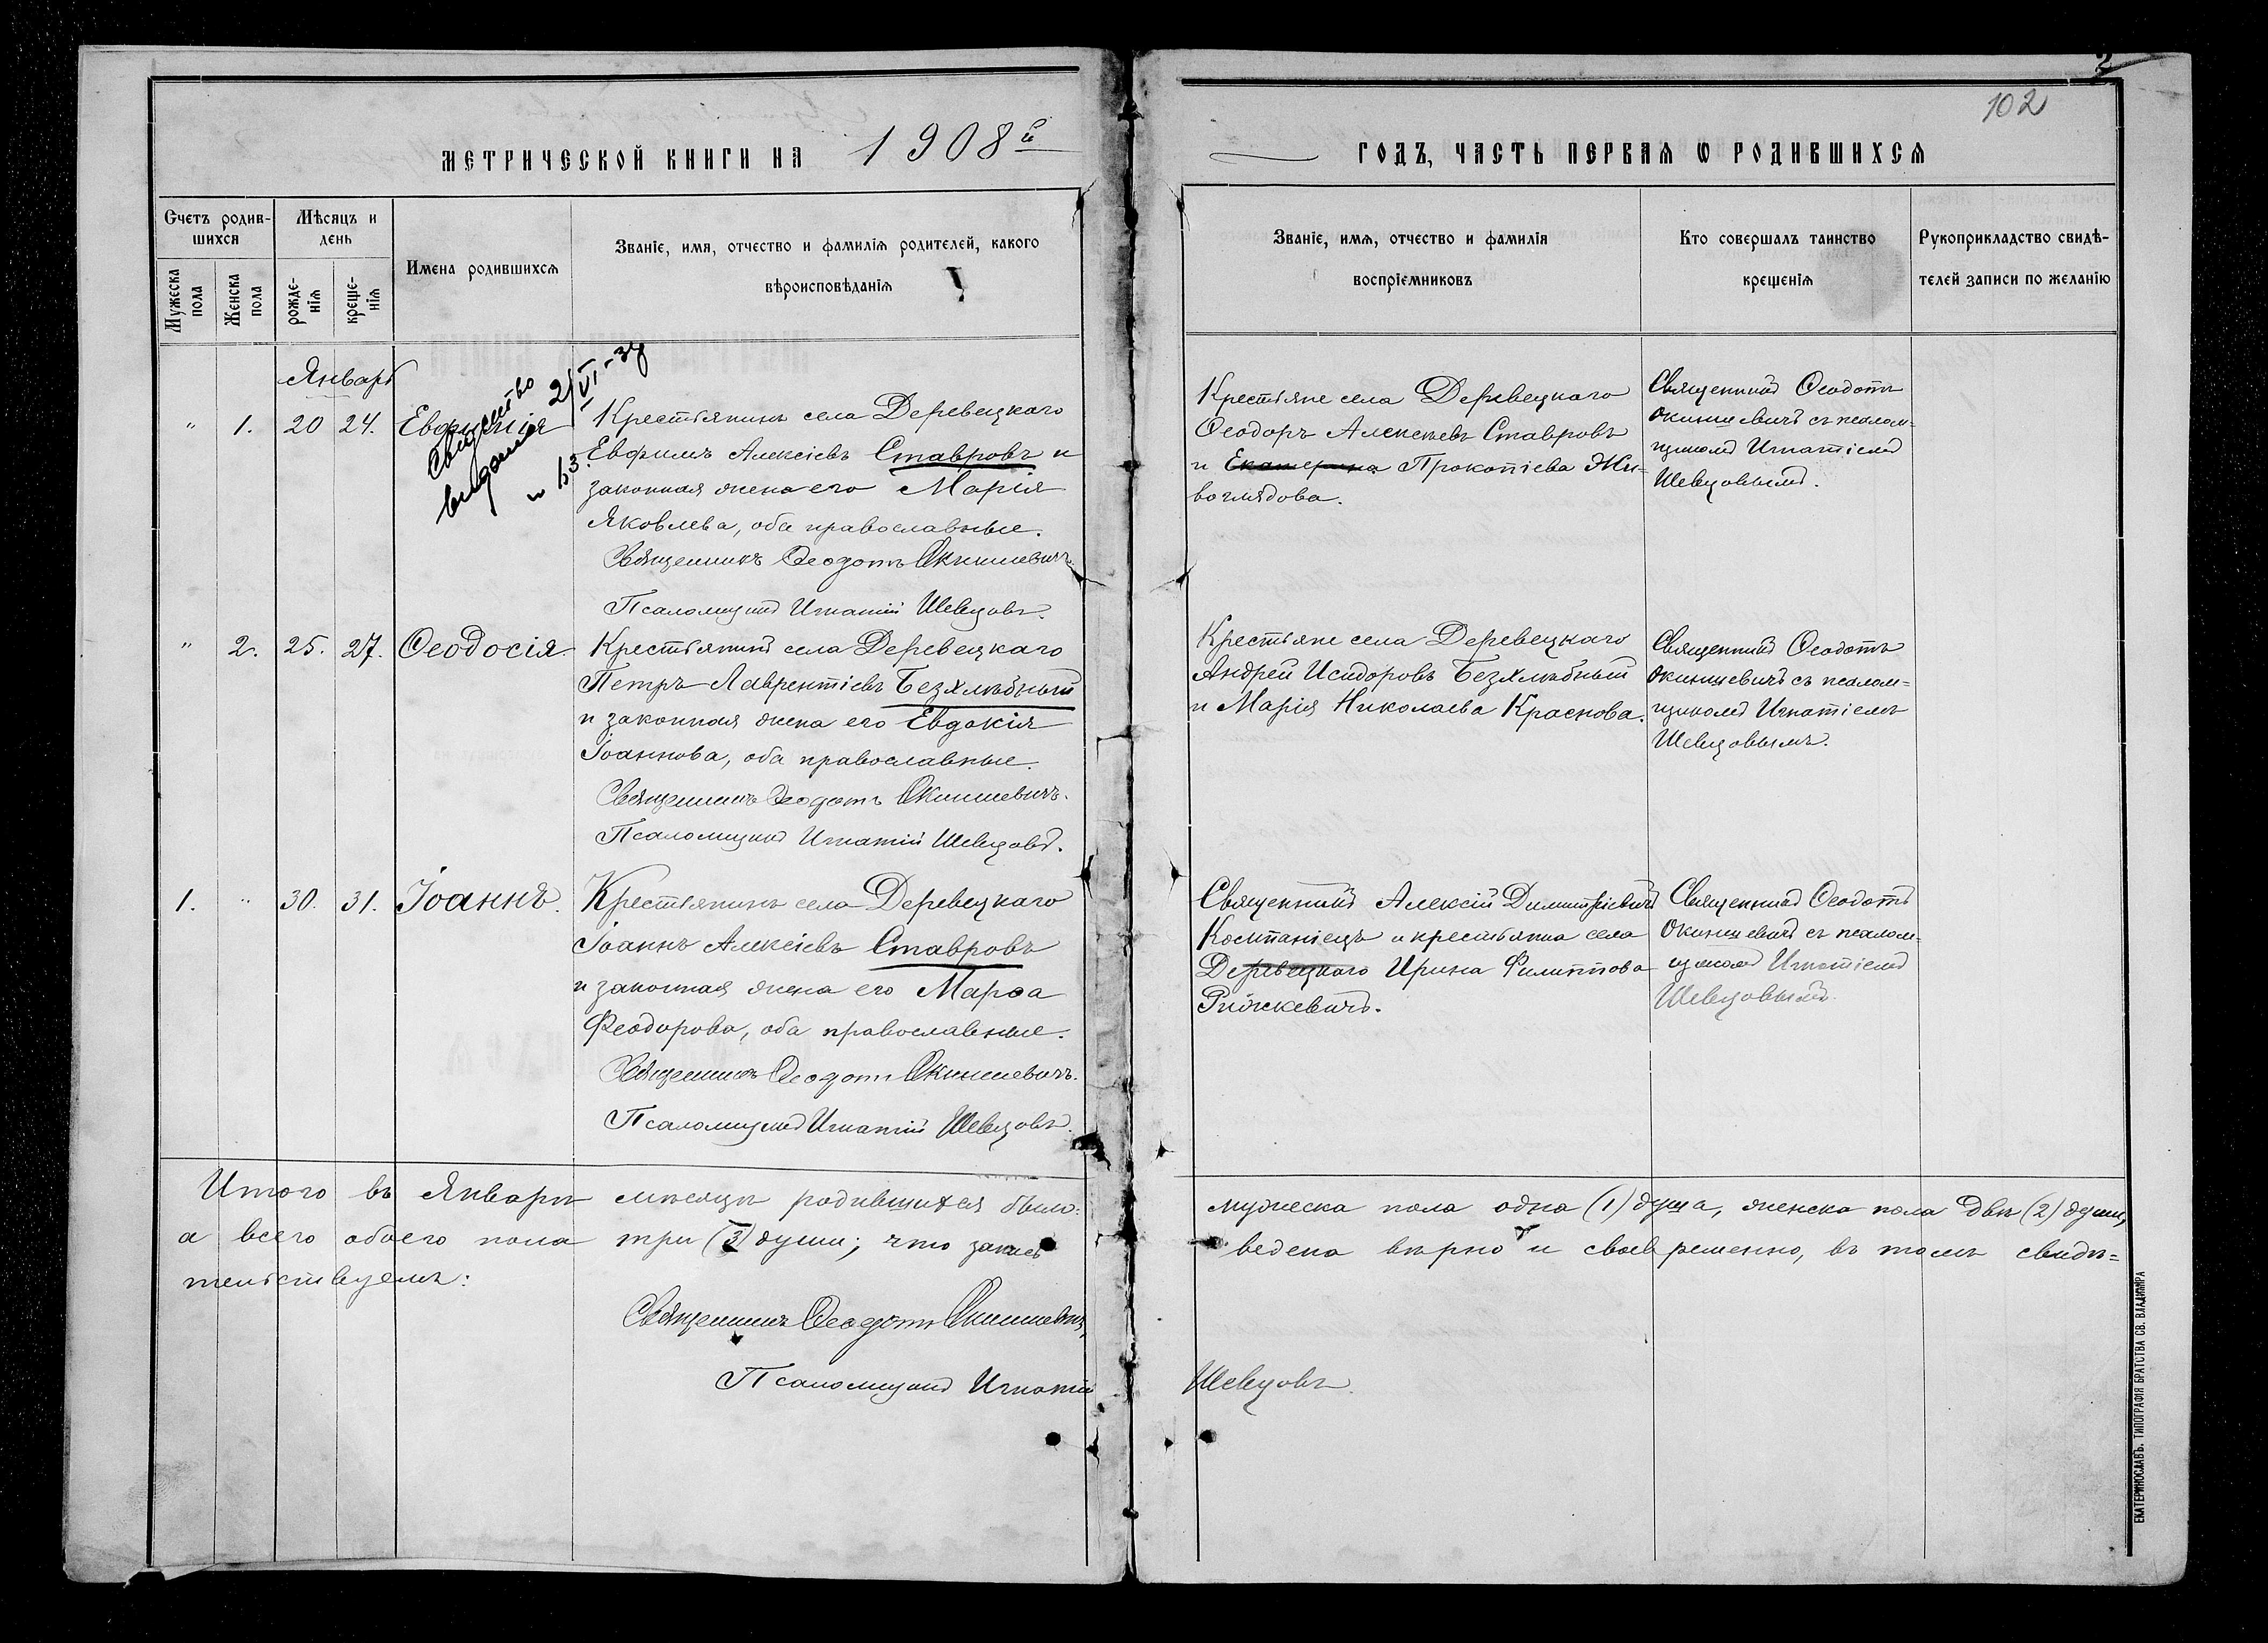 2
102
МЕТРИЧЕСКОЙ КНИГИ НА 1908й
ГОДЪ, ЧАСТЬ ПЕРВАЯ Ѡ РОДИВШИХСЯ
Счетъ родив-
шихся
Мѣсяцъ и
день
Мужеска
пола
Женска
пола
рожде-
нія
креще-
нія
Имена родившихся
Званіе, имя, отчество и фамилія родителей, какого
вѣроисповѣданія
Званіе, имя, отчество и фамилія
воспріемниковъ
Кто совершалъ таинство
крещенія
Рукоприкладство свидѣ-
телей записи по желанію
Январь
" 1. 20 24. Евфимія
Свидетьво
выдано
21/VI-34
Крестьянинъ села Деревецкаго
Евфимъ Алексіевъ Ставровъ и
законная жена его Марія
Яковлева, оба православные.
Священникъ Ѳеодотъ Окиншевичъ.
Псаломщикъ Игнатій Шевцовъ.
Крестьяне села Деревецкаго
Ѳеодоръ Алексіевъ Ставровъ
и Екатерина Прокопіева Жи-
воглядова.
Священникъ Ѳеодотъ
Окиншевичъ съ псалом-
щикомъ Игнатіемъ
Шевцовымъ.
" 2. 25. 27. Ѳеодосія.
Крестьянинъ села Деревецкаго
Петръ Лаврентіевъ Безхлѣбный
и законная жена его Евдокія
Іоаннова, оба православные.
Священникъ Ѳеодотъ Окиншевичъ.
Псаломщикъ Игнатій Шевцовъ.
Крестьяне села Деревецкаго
Андрей Исидоровъ Безхлѣбный
и Марія Николаева Краснова.
Священникъ Ѳеодотъ
Окиншевичъ съ псалом=
щикомъ Игнатіемъ
Шевцовымъ.
1. " 30. 31. Іоаннъ.
Крестьянинъ села Деревецкаго
Іоаннъ Алексіевъ Ставровъ
и законная жена его Марѳа
Феодорова, оба православные.
Священникъ Ѳеодотъ Окиншевичъ.
Псаломщикъ Игнатій Шевцовъ.
Священникъ Алексій Димитріевичъ
Компаніецъ и крестьянка села
Деревецкаго Ирина Филиппова
Священникъ Ѳеодотъ
Окиншевичъ съ псалом=
щикомъ Игнатіемъ
Шевцовымъ.
Итого въ Январѣ мѣсяцѣ родившихся было: мужеска пола одна (1) душа, женска пола двѣ (2) души,
а всего обоего пола три (3) души; что запись ведена вѣрно и своевременно, въ томъ свидѣ=
тельствуемъ:
Священникъ Ѳеодотъ Окиншевичъ,
Псаломщикъ Игнатій Шевцовъ.
ЕКАТЕРИНОСЛАВЪ. ТИПОГРАФІЯ БРАТСТВА СВ. ВЛАДИМІРА